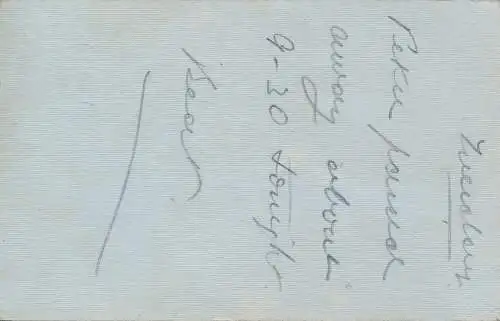 Tuesday.
Peter passed
away about
9-30 tonight.